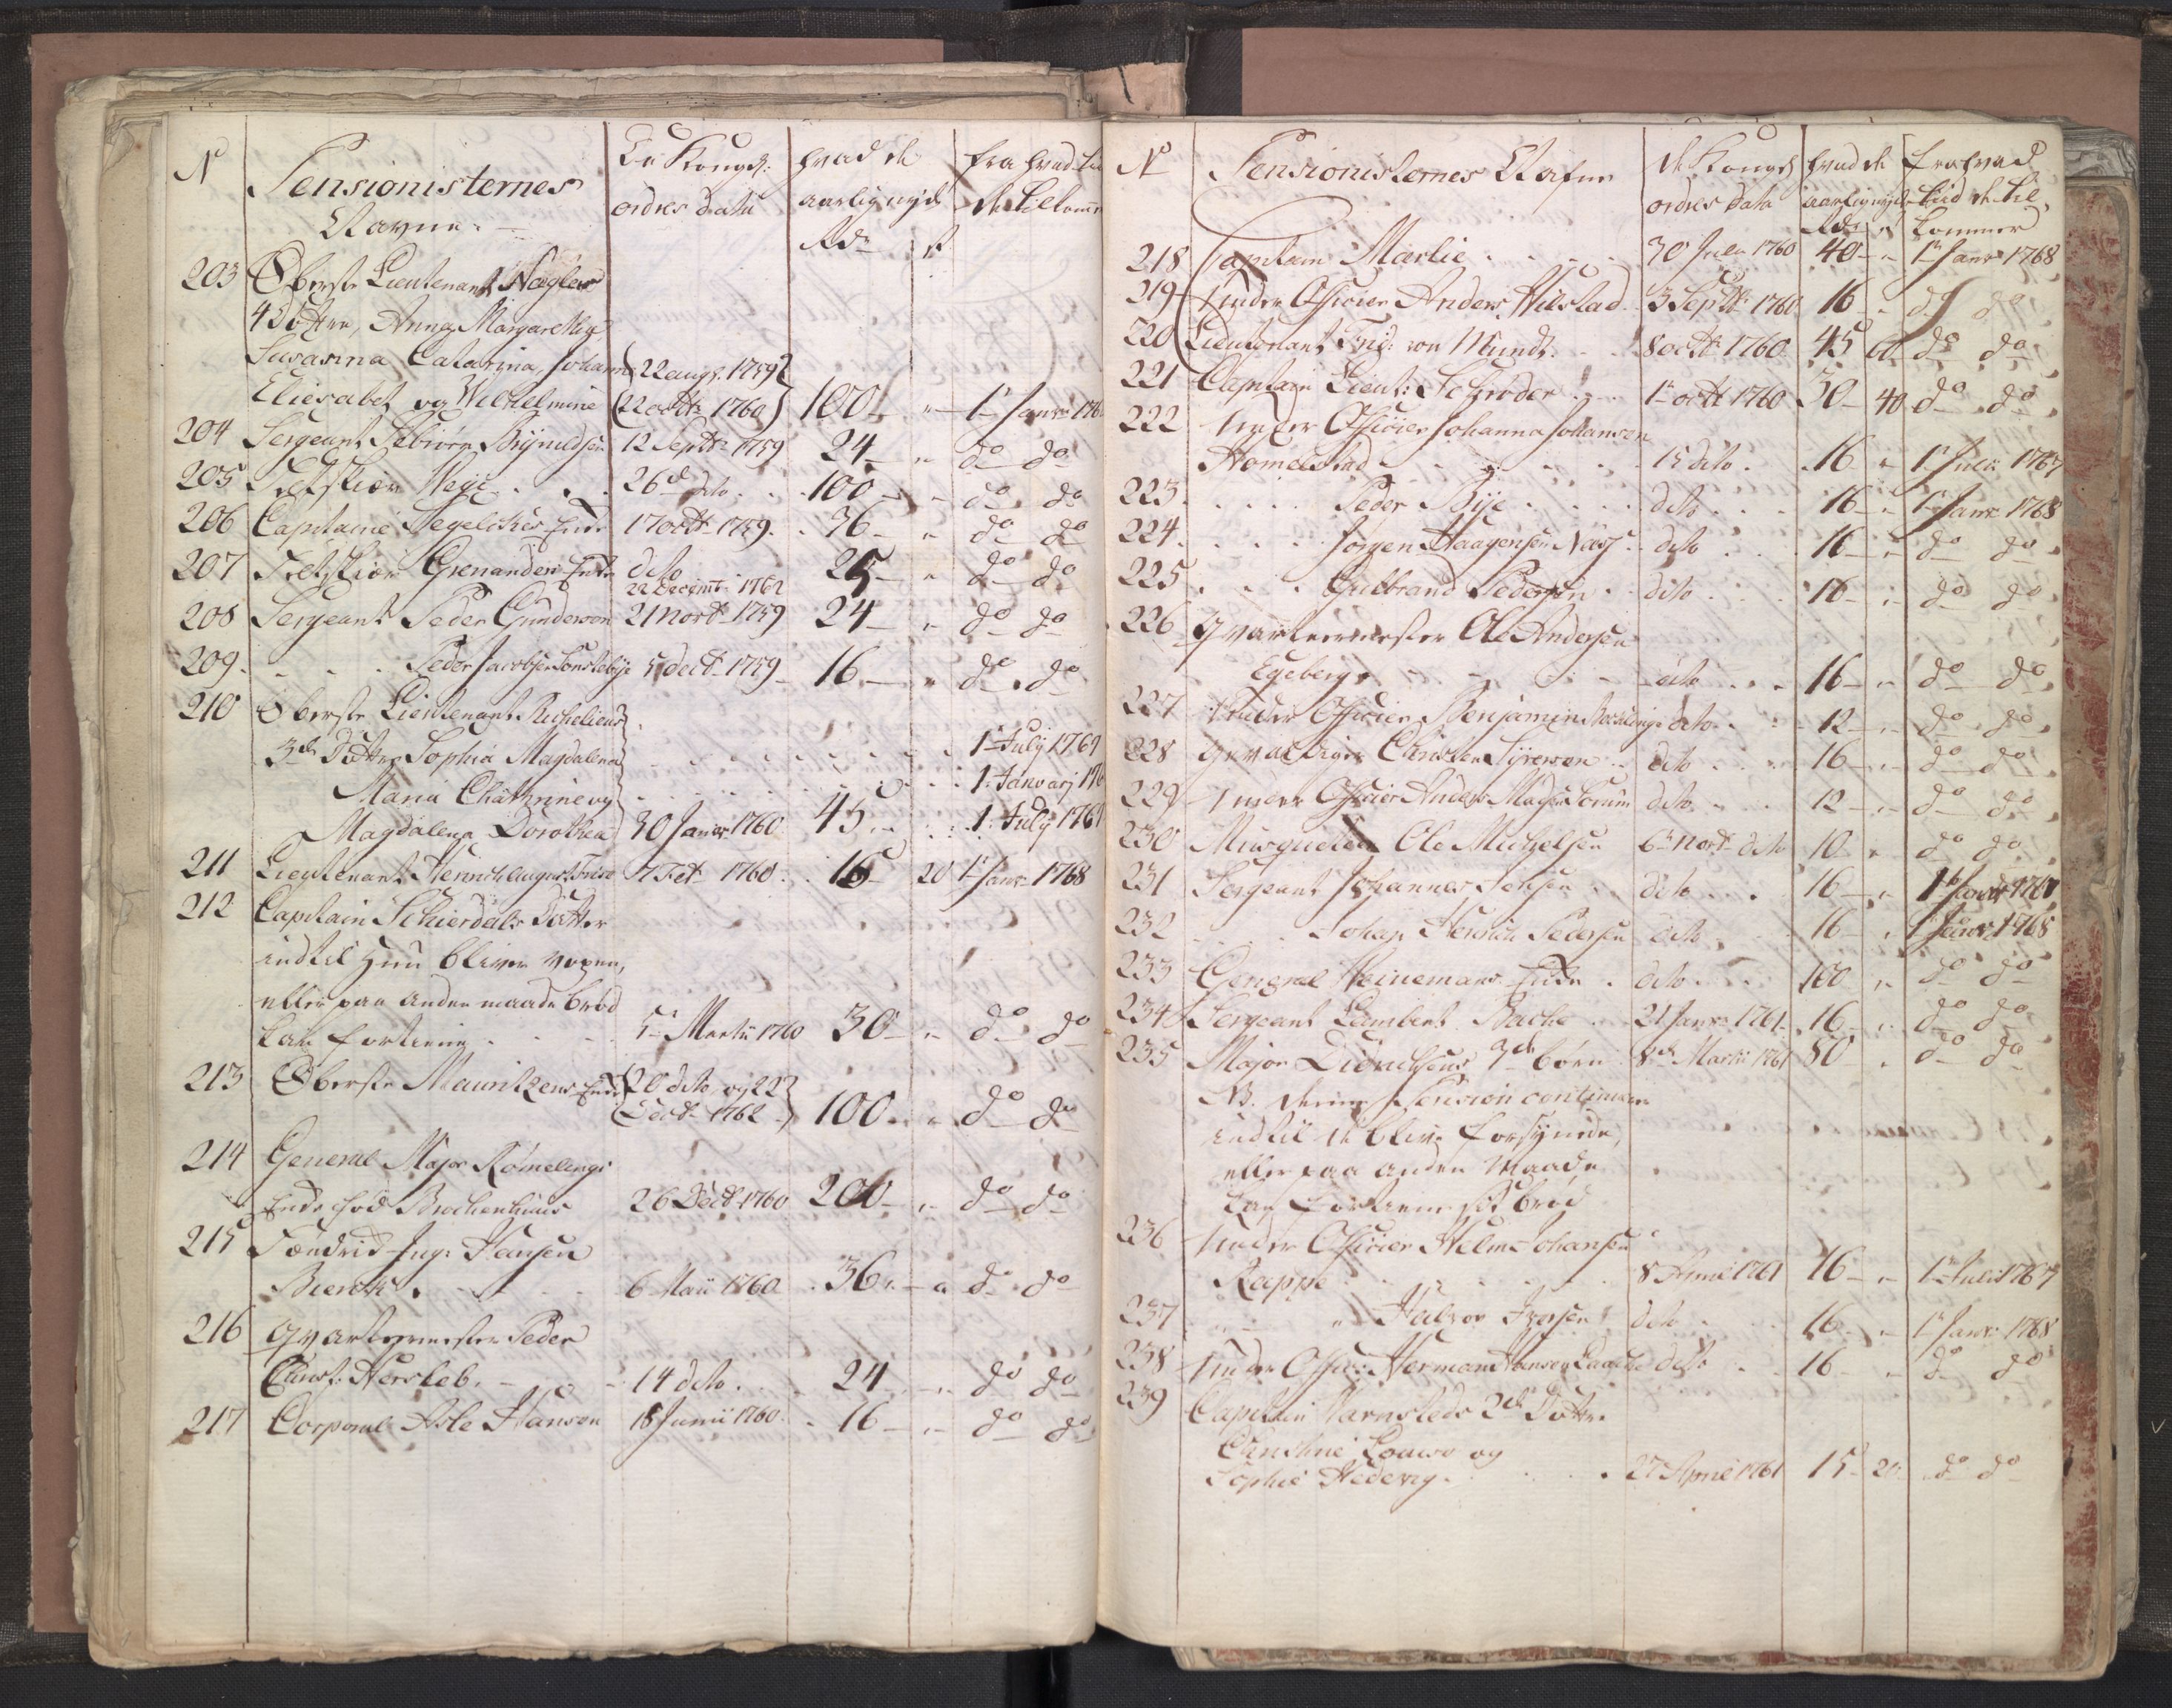 N Pensionisternes De Kongl: hvad de fra hvad tid
Navne. ordres data aarlig nyde de tilkomer
Rdr s
203 Oberste Lieutenant Neglers
4 Døttre, Anna Margarethe,
Susanna Catarina, Johanne 22 augs. 1759
Eliesabet og Wilhelmine 22 octbr 1760 100 „ 1 Janr 176
204 Sergeant Sebiørn Brynildsen 12 Septbr 1759 24 „ do do
205 26de dito 100 - do do
206 Capitaine Segelckes Enke 17 octbr 1759 36 „ do do
207 Grenanders Enke dito 25 „ do do
22 Decemb 1762
208 Sergeant Peder Gunderson 21 Novbr 1759 24 „ do do
209 Peder Jacobsen 5 decbr 1759 16 „ do do
210 Oberste Lieutenant Richelieus
3de Døttre Sophia Magdalena 1 July 1767
Maria Chatrine og 1. Januarj 176
Magdalena Dorothea 30 Januar 1760 45 „ 1. July 1767
211 Lieutenant Henrich August 7 Feb 1760 16 20 1 Janr 1768
212 Capitain Schierdals Datter
indtil hun bliver voxen,
eller paa anden maade brød
kan fortiene 5 Martii 1760 30 „ do do
213 Oberste Mauritzens Enke 20 dito og 22
Decbr 1762 100 „ do do
214 General Major Rømelings
Enke fød Brochenhuus 26 Decbr 1760 200 „ do do
215 Fændrich Hansen
6 Maii 1760 36 „ do do
216 Qvarteermester Peder
Christ: Hersleb. 14 dito 24 „ do do
217 Corporal Asle Hanson 18 Junii 1760 16 „ do do
No Pensionisternes Nafne de Kongl hvad de fra hvad
ordres data aarlig nyde tiid de til
Rdr s kommer
218 Capitain Mærlie 30 Julii 1760 40 „ 1 Janr 1768
219 Under Officier Anders Hilstad 3 Septbr 1760 16 „ do do
220 Lieutenant Frid: von Mundt 8 octbr 1760 45 60 do do
221 Captain Lieut: Schrøder 1 octbr 1760 30 40 do do
222 Under Officier Johanna Johansen
Homelstad 15 dito 16 „ 1 Julii 1767
223 Peder Bye dito 16 „ 1 Janr 1768
224 Jørgen Haagensen Næss dito 16 „ do do
225 Gulbrand Pedersen dito 16 „ do do
226 Qvarteermester Ole Andersen
Egeberg dito 16 „ do do
227 Under Officier Benjamin dito 12 „ do do
228 Gevaldiger Christen Syverson dito 16 „ do do
229 Under Officier Anders Madsen dito 12 „ do do
230 Musqueteer Ole Michelsen 6 Novbr dito 10 „ do do
231 Sergeant Johannes Jensen dito 16 „ 1 1767
232 Johan Henrich Pedersen dito 16 „ 1 Janr 1768
233 General Heinemans Enke dito 100 „ do do
234 Sergeant Lambert Bache 21 Janr 1761 16 „ do do
235 Major Diedrichsens 7de børn 8de Martii 1761 80 „ do do
NB. denne Pension continuerer
indtil de blive forsynede,
eller paa anden Maade
kan fortiene sit brød
236 Under Officier Helm Johansen
Rappe 8 April 1761 16 „ 1 Julii 1767
237 „ Halvor Iversen dito 16 „ 1 Janr 1768
238 Under Offic: Herman Hansen dito 16 „ do do
239 Capitain Warnsteds 2de Døttre
Christine Lowise og
Sophie Hedevig 27 April 1761 15 20 do do